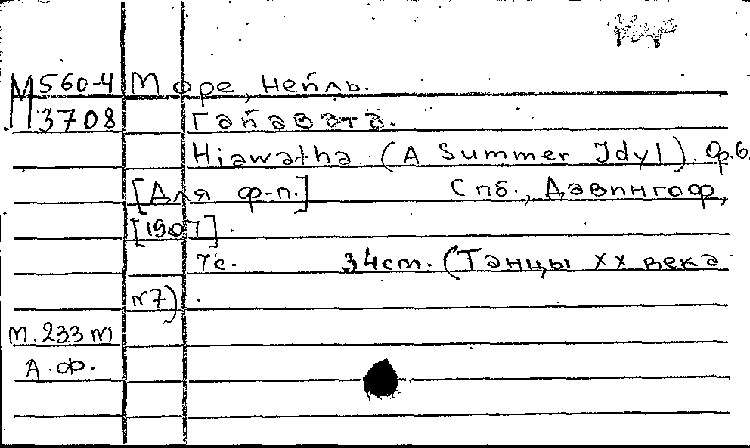 М 560-4 Море, Нейль.
3708 Гайавата.
Hiawatha (A Summer Idyl). Op.6.
[Для ф-п.] Спб., Давингоф,
[1907].
7с. 34cm. (Танцы XX века
n7).
m.233m
А.ф.